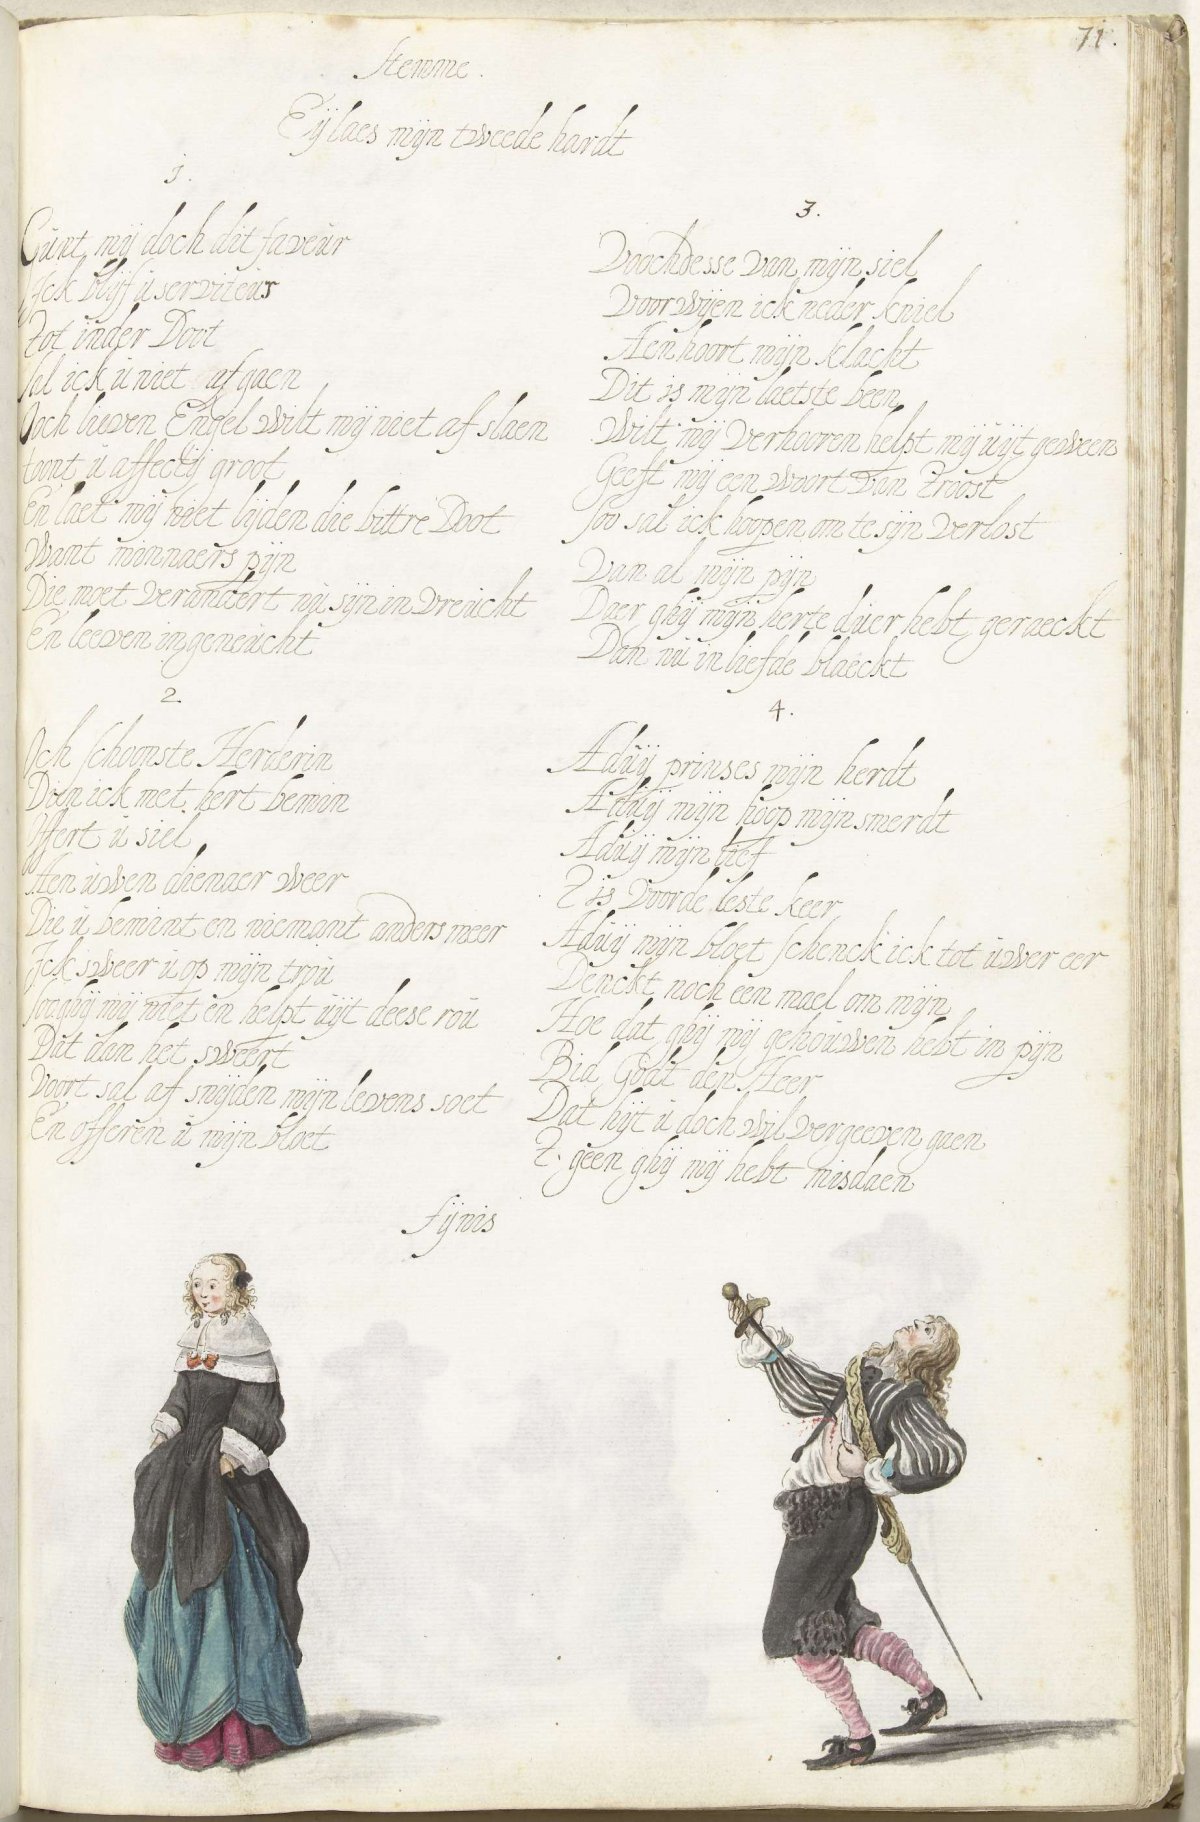 71.
Stemme.
Eÿlaes mijn tweede hardt
1.
Gunt mij doch dit faveur
Ick blijf u serviteur
Tot inder Doot
Sal ick u niet af gaen
Och lieven Engel wilt mij niet af slaen
toont u affectij groot
En laet mij niet lijden die bittre Doot
Want minnaers pijn
Die moet verandert nu sijn in vreucht
En leeven in geneucht
2.
Och schoonste Herderin
Dien ick met hert bemin
Offert u siel
Aen uwen dienaer weer
Die u bemint en niemant anders meer
Ick sweer u op mijn trou
Soo ghij mij niet en helpt uijt deese rou
Dat dan het sweert
Voort sal af snijden mijn levens soet
En offeren u mijn bloet
3.
Voochdesse van mijn siel
Voor wijen ick neder kniel
Aenhoort mijn klacht
Dit is mijn laetste been
Wilt mij verhooren helpt mij uijt geween
Geeft mij een woort van Troost
Soo sal ick hoopen om te sijn verlost
Van al mijn pijn
Daer ghij mijn herte duer hebt geraeckt
Dan nu in liefde blaeckt
4.
Aduij prinses mijn herdt
Aduij mijn hoop mijn smerdt
Aduij mijn lief
T is voor de leste keer
Aduij mijn bloet schenck ick tot uwer eer
Denckt noch een mael om mijn
Hoe dat ghij mij gehouwen hebt in pijn
Bid Godt den Heer
Dat hijt u doch wil vergeeven gaen
T. geen ghij mij hebt misdaen
Fijnis